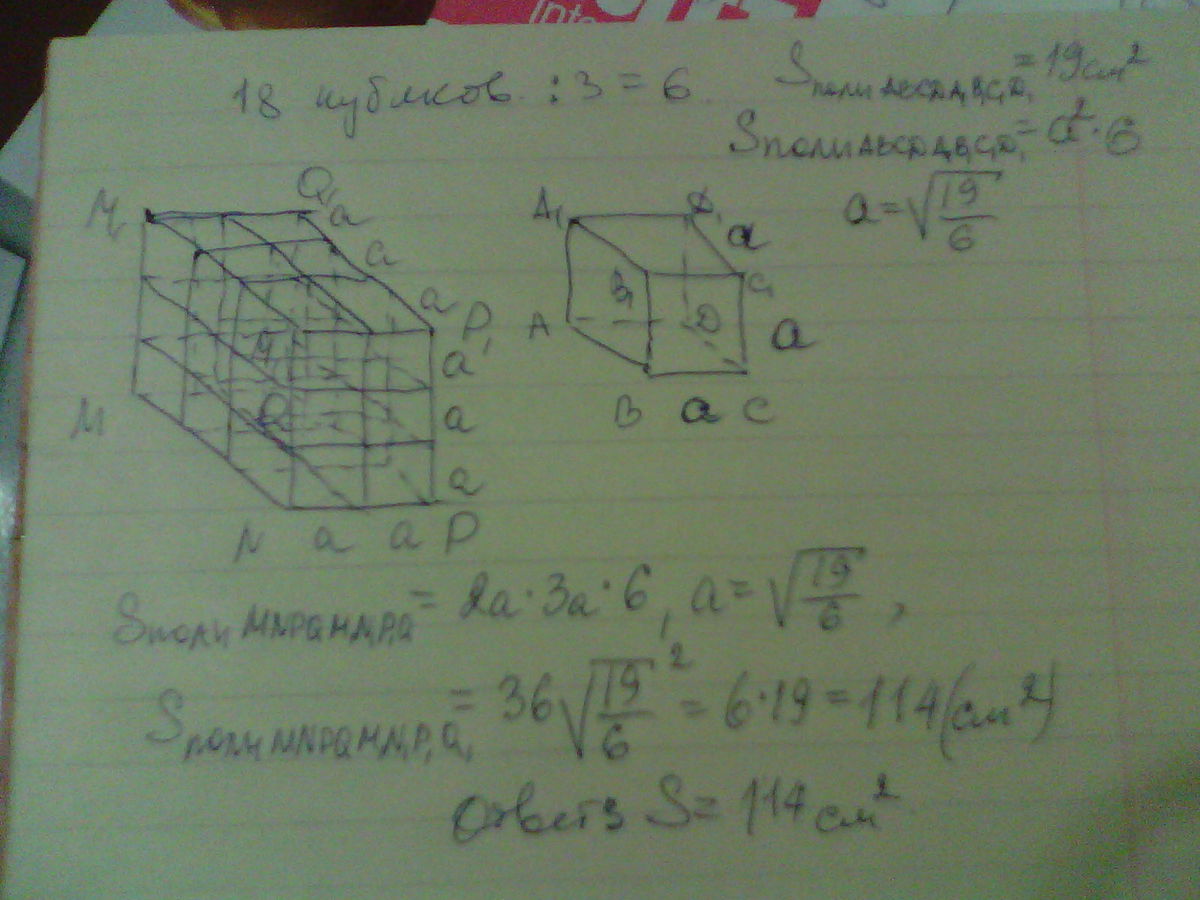 18 кубиков : 3 = 6
Sполн ABCDA₁B₁C₁D₁ = 19 см²
Sполн ABCDA₁B₁C₁D₁ = a² · 6
a = √(19/6)
M₁ Q₁ a a a P₁ a a a M N a a P Q
A₁ D₁ a B₁ C₁ A D a B a C
Sполн MNPQM₁N₁P₁Q₁ = 2a · 3a · 6, a = √(19/6),
Sполн MNPQM₁N₁P₁Q₁ = 36√(19/6)² = 6 · 19 = 114 (см²)
Ответ: S = 114 см²